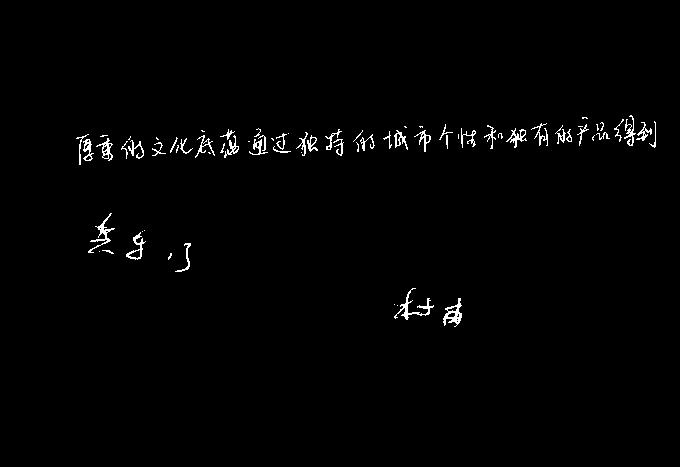 厚重的文化底蕴通过独特的城市个性和独有的产品得到